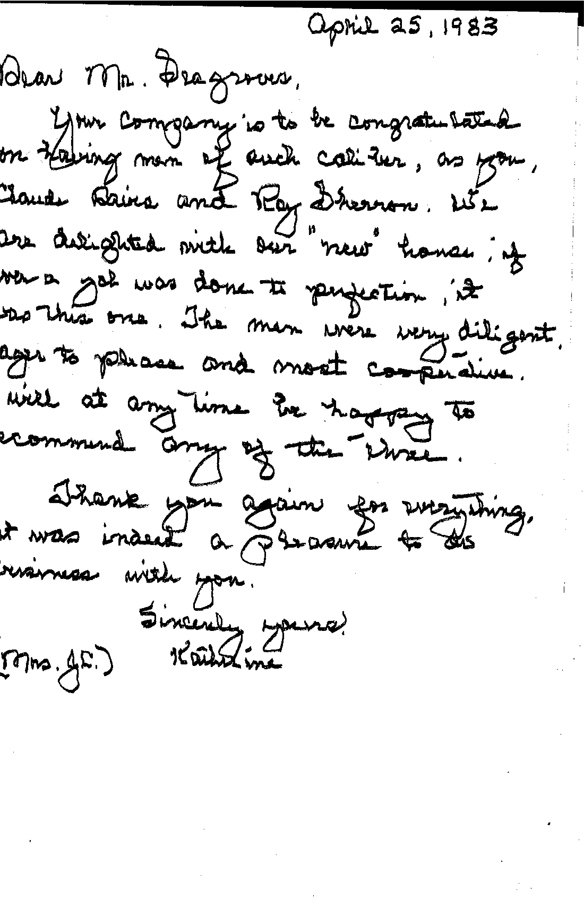 April 25, 1983
Dear Mr. Seagroves,
Your company is to be congratulated
on having men of such caliber, as you,
Claude Davis and Roy Sherron. We
are delighted with our "new" house; if
ever a job was done to perfection, it
was this one. The men were very diligent,
eager to please and most cooperative.
will at any time be happy to
recommend any of the three.
Thank you again for everything,
it was indeed a pleasure to do
business with you.
Sincerely yours,
(Mrs. J.C.) Katherine